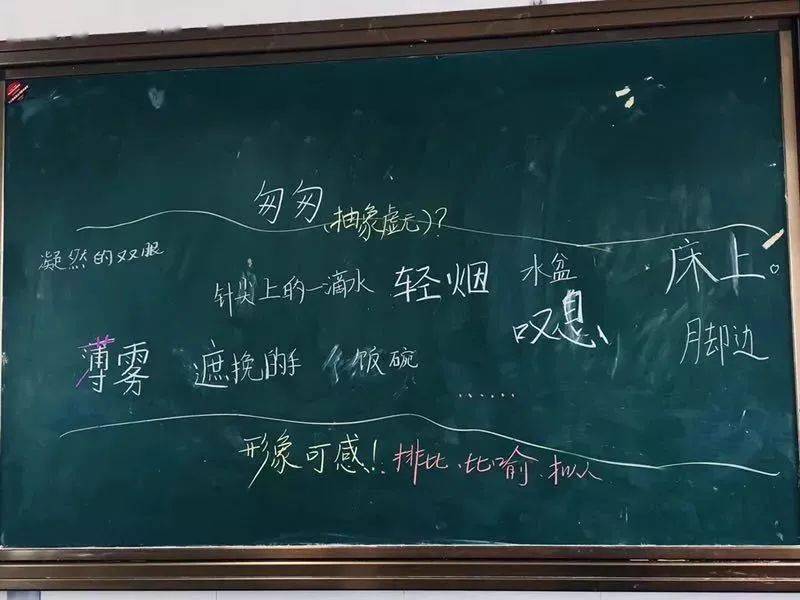 匆匆(抽象虚无)?
凝然的双眼
针尖上的一滴水 轻烟 水盆 床上。
叹息
薄雾 遮挽的手 饭碗 脚边
......
形象可感! 排比、比喻、拟人